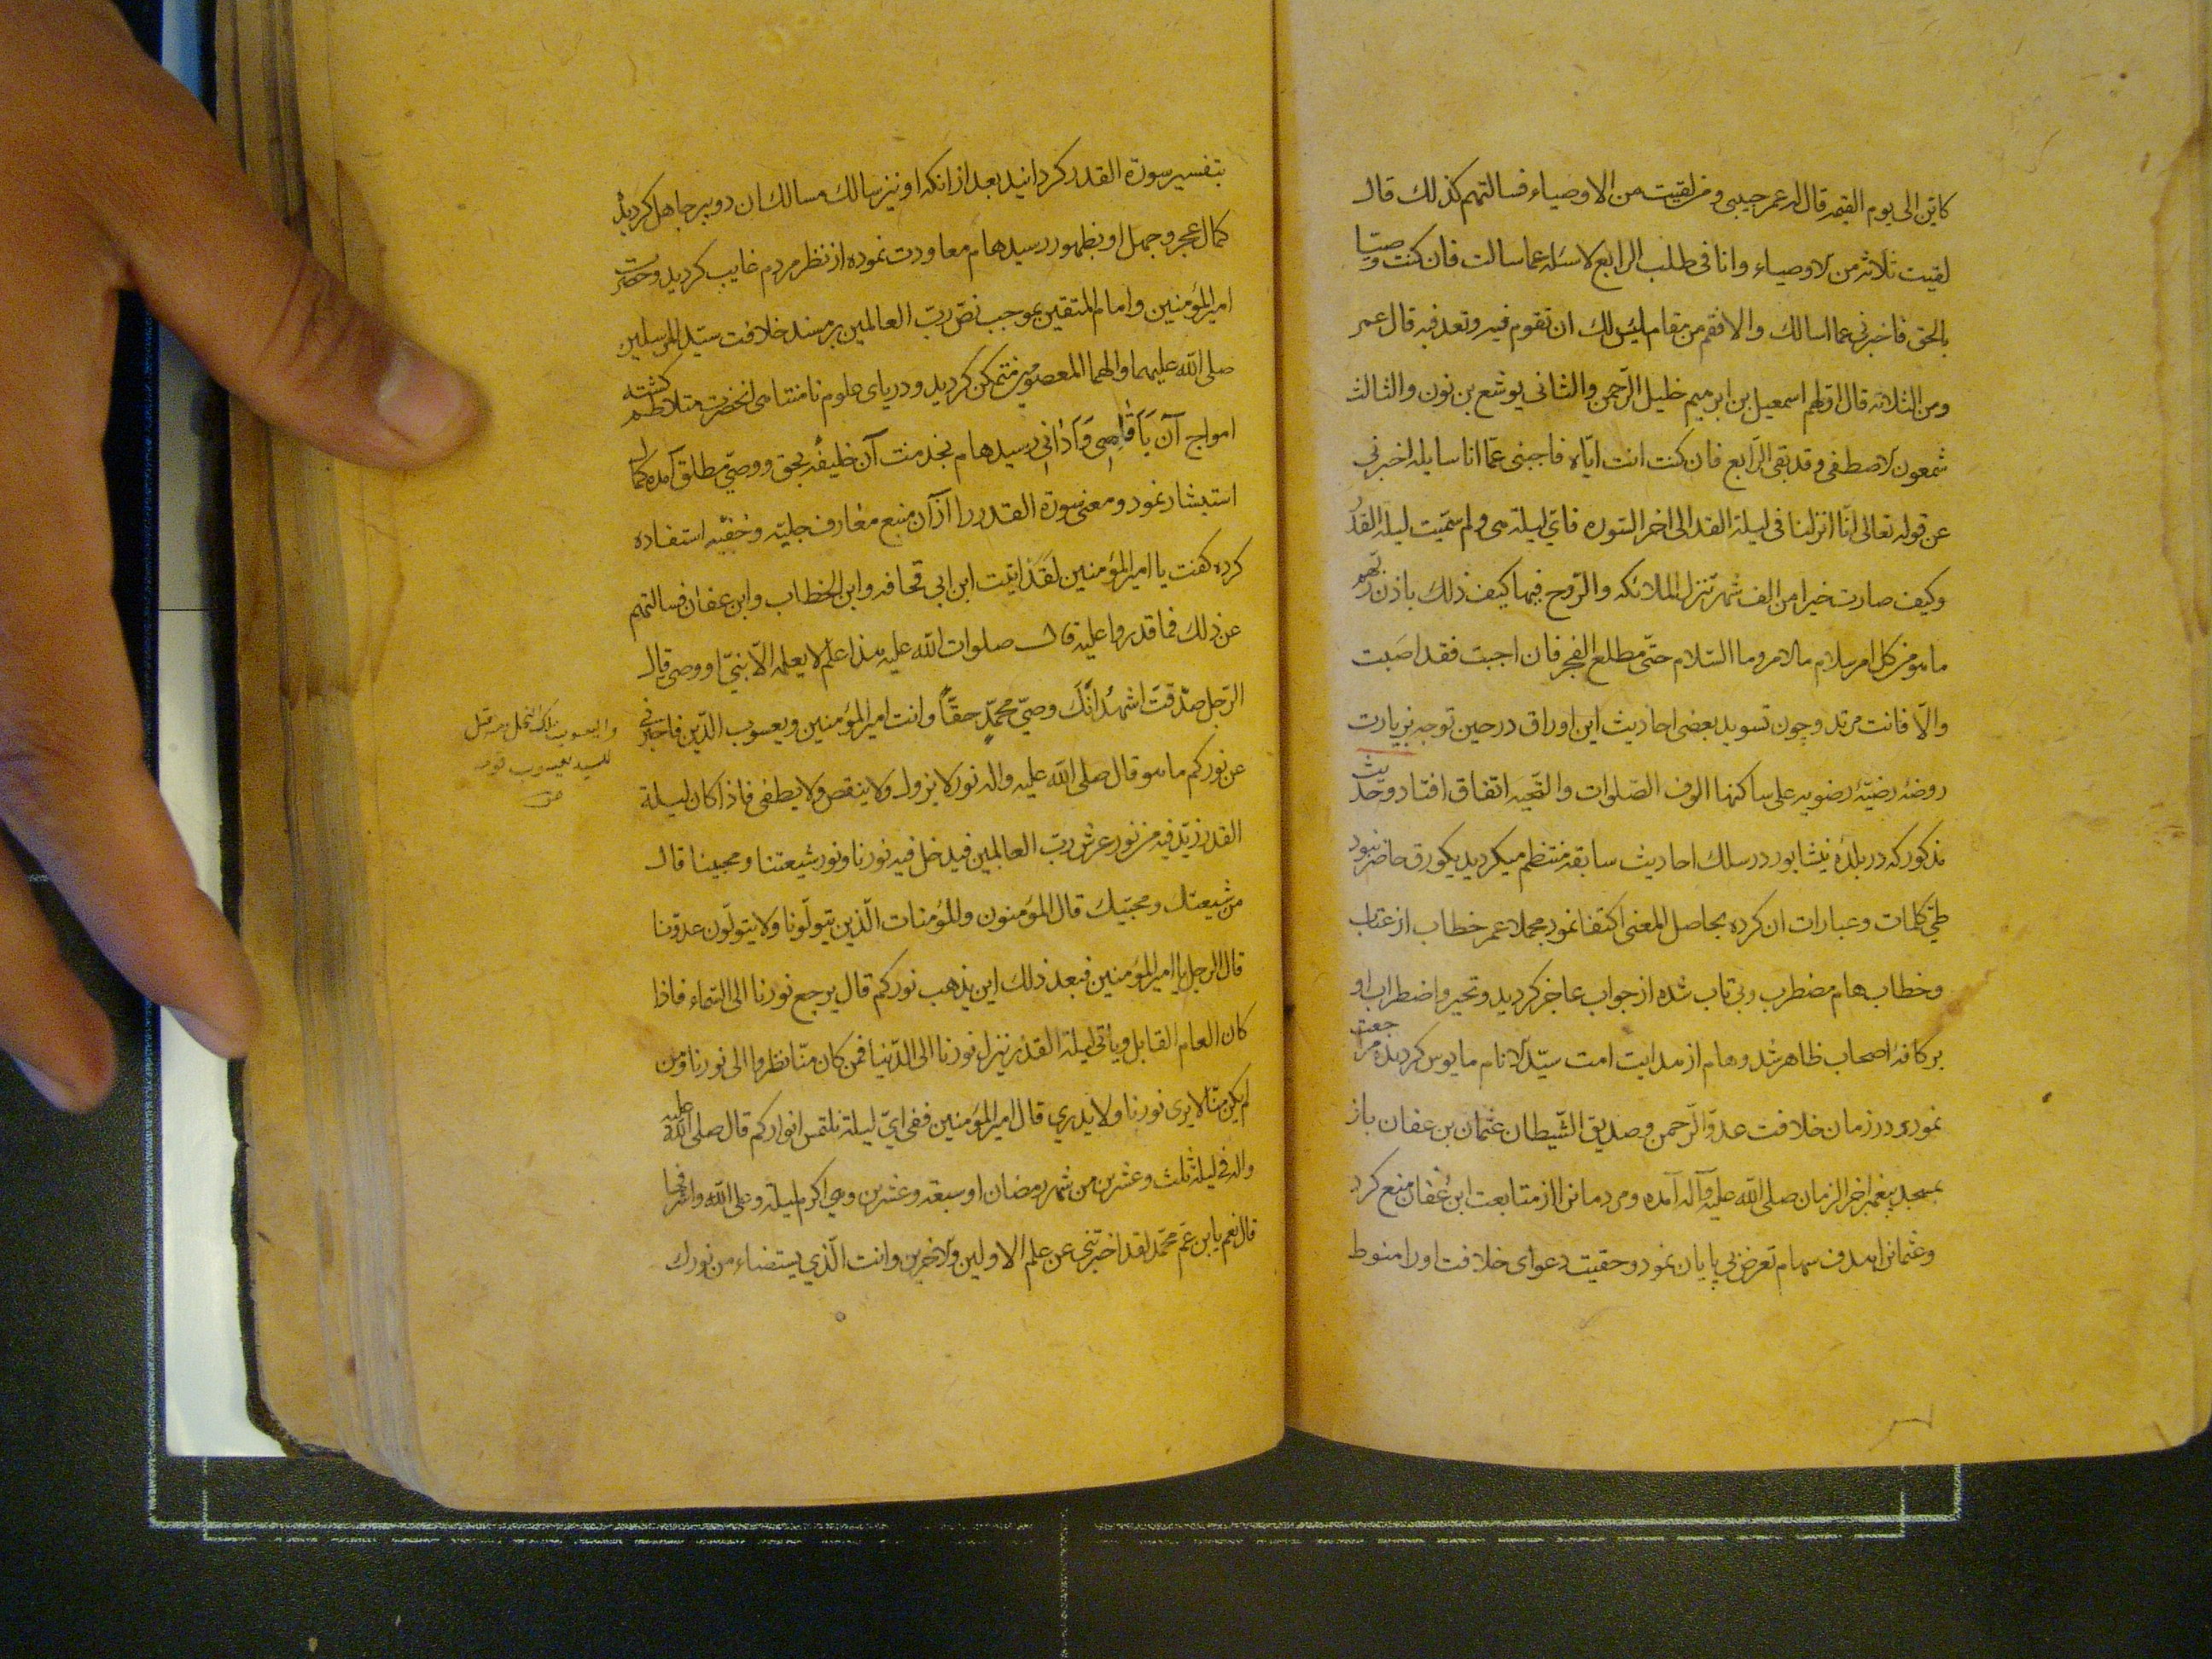 كاين الى يوم القيمه قال له عمر حبيبى و من لقيت من الاوصياء فسالتهم كذلك قال
لقيت ثلاثه من الاوصياء وانا فى طلب الرابع لاسئله عما سالت فان كنت وصيا
بالحق فاخبرنى عما اسالك والا فقم من مقام ليس لك ان تقوم فيه و تعد فيه قال عمر
ومن الثلاثه قال اولهم اسمعيل بن ابرهيم خليل الرّحمن والثانى يوشع بن نون والثالث
شمعون الاصطفى وقد بقى الرّابع فان كنت انت ايّاه فاجبنى عمّا انا سايله اخبرنى
عن قوله تعالى انّا انزلناه فى ليلة القدر الى اخر السّوره فاىّ ليلة هى ولم سمّيت ليله القدر
وكيف صارت خيرا من الف شهر تنزل الملائكه والرّوح فيها كيف ذلك باذن ربّهم
ما هو من كل امر سلام ما الامر وما السّلام حتّى مطلع الفجر فان اجبت فقد اصبت
والّا فانت مرتد و چون تسويد بعضى احاديث اين اوراق در حين توجه بزيارت
روضهٔ رضيّهٔ رضويه على ساكنها الوف الصّلوات والتّحيه اتفاق افتاد وحديث
مذكور كه در بلدهٔ نيشابور در سلك احاديث سابقه منتظم ميكرديد يكورق حاضر نبود
طىّ كلمات و عبارات ان كرده بحاصل المعنى اكتفا نمود مجملا عمر خطاب از عتاب
وخطاب هام مضطرب و بى تاب شده از جواب عاجز كرديد و تحير و اضطراب او
بر كافهٔ اصحاب ظاهر شد وهام از هدايت امت سيّد الانام مايوس كرديده مراجعت
نمود و در زمان خلافت عدوّ الرّحمن و صديق الشّيطان عثمان بن عفان باز
بمسجد پيغمبر اخر الزمان صلى اللّه عليه وآله آمده و مردمانرا از متابعت ابن عفان منع كرد
و عثمانرا هدف سهام تعرض بى پايان نمود و حقيت دعواى خلافت او را منوط
بتفسير سورة القدر كردانيد بعد از انكه او نيز سالك مسالك ان دو پير جاهل كرديده
كمال عجز و جهل او بظهور رسيد هام معاودت نموده از نظر مردم غايب كرديد و حضرت
امير المؤمنين و امام المتقين بموجب نصّ ربّ العالمين بر مسند خلافت سيّد المرسلين
صلى اللّه عليهما والهما المعصومين متمكن كرديد و درياى علوم نامتناهى انحضرت متلاطم كشته
امواج آن باقاصى و ادانى رسيد هام بخدمت آن خليفهٔ بحق و وصىّ مطلق آمده كمال
استبشار نمود و معنى سورة القدر را از آن منبع معارف جليّه و خفيّه استفاده
كرده كفت يا امير المؤمنين لقد اتيت ابن ابى قحافه وابن الخطاب وابن عفان فسالتهم
عن ذلك فما قدروا عليه قال صلوات اللّه عليه هذا علم لا يعلمه الّا نبىّ او وصى قال
الرّجل صدّقت اشهد انّك وصىّ محمّد حقّاً وانت امير المؤمنين و يعسوب الدّين فاخبرنى
عن نوركم ما هو قال صلى اللّه عليه واله نور لا يزول ولا ينقص ولا يطفى فاذا كان ليلة
القدر زيّد فيه من نور عرش ربّ العالمين فيدخل فيه نورنا ونور شيعتنا و محبينا قال
من شيعتك ومحبّيك قال المؤمنون والمؤمنات الّذين يتولّونا ولا يتولّون عدوّنا
قال الرجل يا امير المؤمنين فبعد ذلك اين يذهب نوركم قال يرجع نورنا الى السّماء فاذا
كان العام القابل و يأتى ليلة القدر ينزل نورنا الى الدّنيا فمن كان منّا نظروا الى نورنا و من
لم يكن منّا لا يرى نورنا ولا يدري قال امير المؤمنين ففى اىّ ليلة نلتمس انواركم قال صلى اللّه عليه
واله فى ليلة ثلث وعشرين من شهر رمضان او سبعة وعشرين وهى اكرم ليلة وعلى اللّه واشرفها
قال نعم يا بن عم محمّد لقد اخبرتنى عن علم الاولين والاخرين وانت الّذي يستضاء من نورك
واليعسوب ملك النحل ومنه قيل
للسيد يعسوب قومه